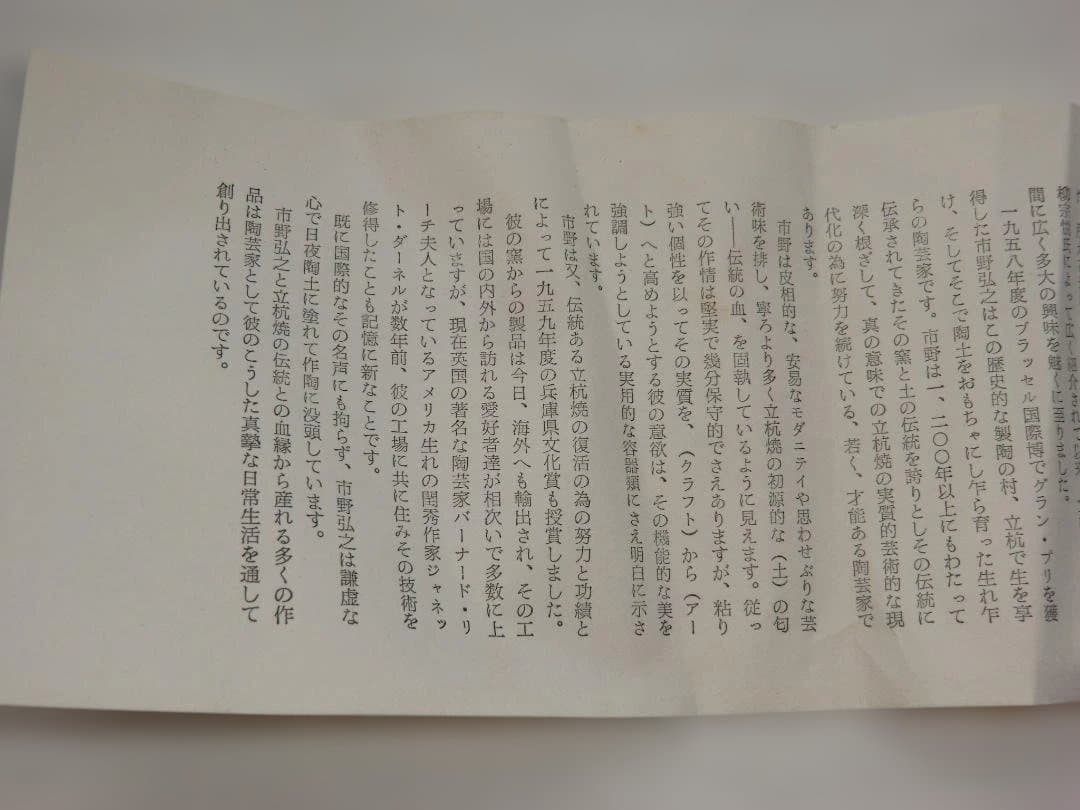 間に広く多大の興味を魅くに至りました。
一九五八年度のブラッセル国際博でグラン・プリを獲
得した市野弘之はこの歴史的な製陶の村、立杭で生を享
け、そしてそこで陶土をおもちゃにし乍ら育った生れ乍
らの陶芸家です。市野は一、二〇〇年以上にもわたって
伝承されてきたその窯と土の伝統を誇りとしその伝統に
深く根ざして、真の意味での立杭焼の実質的芸術的な現
代化の為に努力を続けている、若く、才能ある陶芸家で
あります。
市野は皮相的な、安易なモダニティや思わせぶりな芸
術味を排し、寧ろより多く立杭焼の初源的な(土)の匂
い――伝統の血、を固執しているように見えます。従っ
てその作情は堅実で幾分保守的でさえありますが、粘り
強い個性を以ってその実質を、(クラフト)から(アー
ト)へと高めようとする彼の意欲は、その機能的な美を
強調しようとしている実用的な容器類にさえ明白に示さ
れています。
市野は又、伝統ある立杭焼の復活の為の努力と功績と
によって一九五九年度の兵庫県文化賞も授賞しました。
彼の窯からの製品は今日、海外へも輸出され、その工
場には国の内外から訪れる愛好者達が相次いで多数に上
っていますが、現在英国の著名な陶芸家バーナード・リ
ーチ夫人となっているアメリカ生れの閨秀作家ジャネッ
ト・ダーネルが数年前、彼の工場に共に住みその技術を
修得したことも記憶に新なことです。
既に国際的なその名声にも拘らず、市野弘之は謙虚な
心で日夜陶土に塗れて作陶に没頭しています。
市野弘之と立杭焼の伝統との血縁から産れる多くの作
品は陶芸家として彼のこうした真摯な日常生活を通して
創り出されているのです。